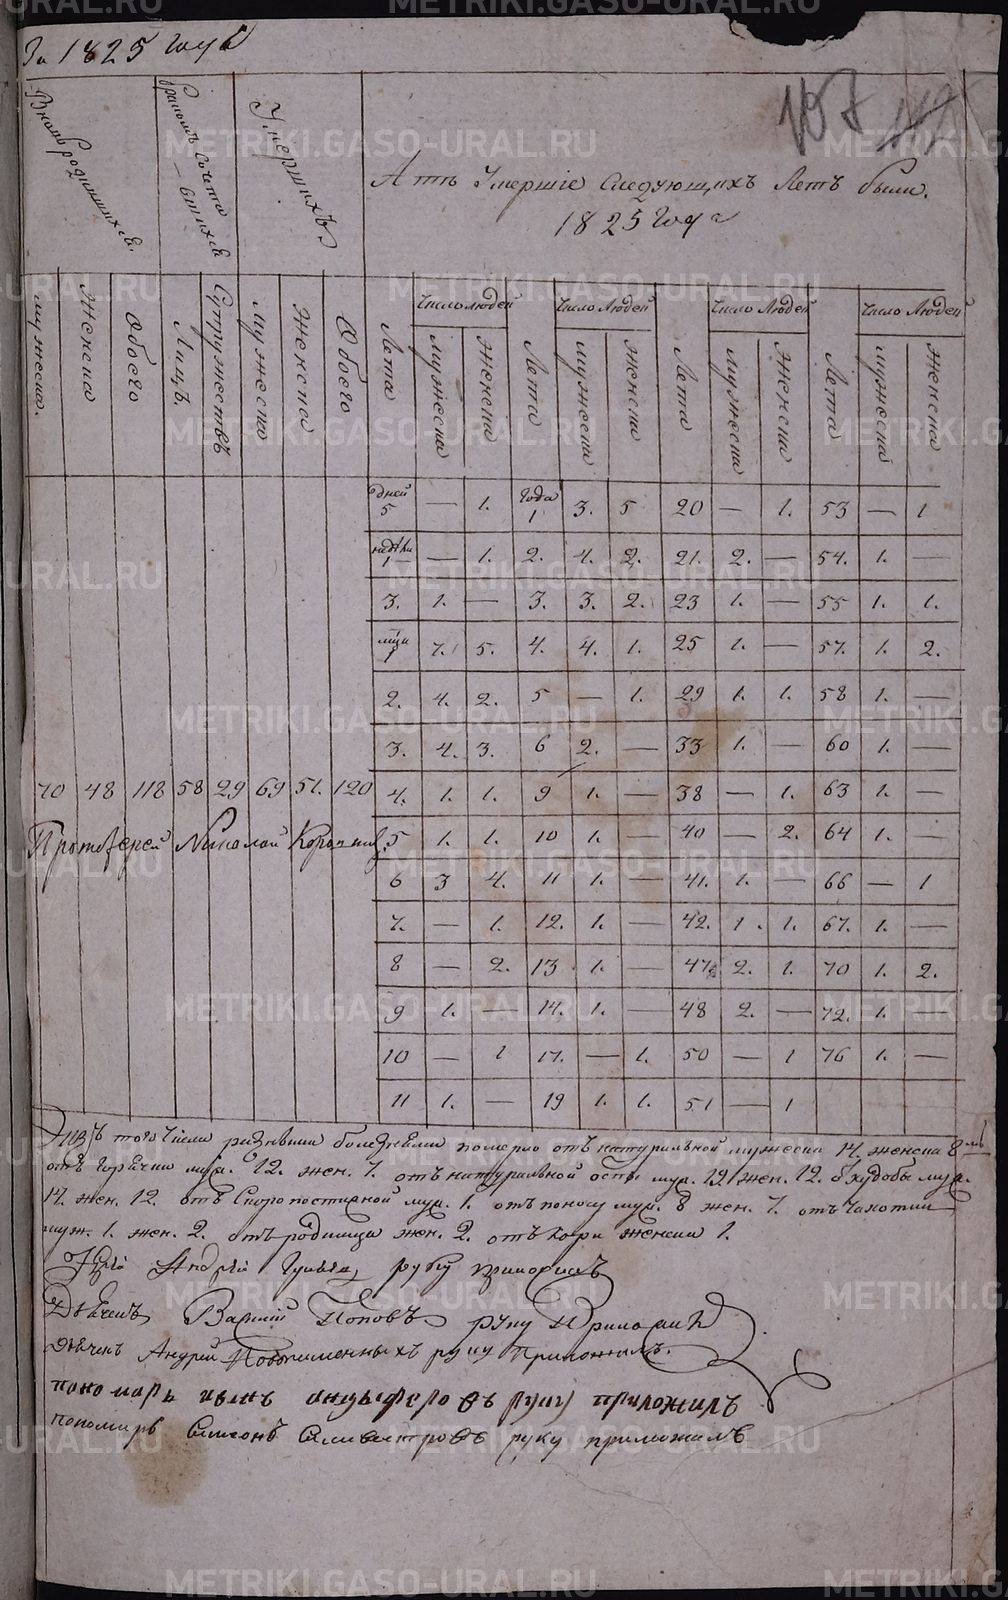 За 1825 годъ
187
Вновь родившихся.
Бракомъ сочета
вшихся
Умершихъ
А тѣ Умершіе следующихъ Летъ были.
1825 Года
мужеска. Женска Обоего Лицъ. Супружествъ мужеска Женска Обоего
Лета Число людей мужеска женска Лета Число Людей мужеска женска Лета Число Людей мужеска женска Лета Число Людей мужеска женска
дней 5 — 1. Года 1 3. 5 20 — 1. 53 — 1
недѣли 1 — 1. 2. 4. 2. 21. 2. — 54. 1. —
3. 1. — 3. 3. 2. 23 1. — 55 1. 1.
мца 1 7. 5. 4. 4. 1. 25 1. — 57. 1. 2.
2. 4. 2. 5 — 1. 29 1. 1. 58 1. —
3. 4. 3. 6 2. — 33 1. — 60 1. —
70 48 118 58 29 69 51. 120 4. 1. 1. 9 1. — 38 — 1. 63 1. —
Протоіерей Николай 5 1. 1. 10 1. — 40 — 2. 64 1. —
6 3 4. 11 1. — 41. 1. — 66 — 1
7. — 1. 12. 1. — 42. 1. 1. 67. 1. —
8 — 2. 13 1. — 47. 2. 1. 70 1. 2.
9 1. — 14. 1. — 48 2. — 72. 1. —
10 — 1 17. — 1. 50 — 1 76 1. —
11 1. — 19 1. 1. 51 — 1
Изъ того Числа разными болезнями померло отъ натуральной мужеска 14. женска 8
отъ горячки муж. 12. жен. 7. отъ натуральной оспы муж. 19 жен. 12. худобы муж.
14. жен. 12. отъ Скоропостижной муж. 1. отъ поносу муж. 8 жен. 7. отъ Чахотки
муж. 1. жен. 2. отъ родимца жен. 2. отъ кори женска 1.
Іерей Андрей руку приложилъ
Дьячекъ Василій Поповъ руку Приложилъ
дьячекъ Андрей руку Приложилъ.
пономарь иванъ анцыферовъ руку приложилъ
пономарь Симеонъ Силвестровъ руку приложилъ
METRIKI.GASO-URAL.RU